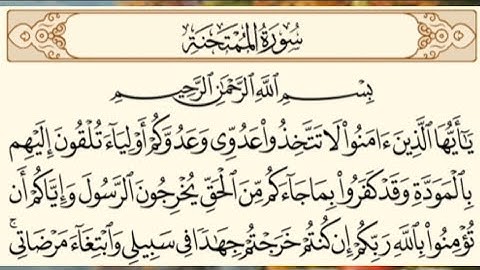 سُورَةُ المُمْتَحنَةِ
بِسْمِ ٱللَّهِ ٱلرَّحْمَٰنِ ٱلرَّحِيمِ
يَٰٓأَيُّهَا ٱلَّذِينَ ءَامَنُوا۟ لَا تَتَّخِذُوا۟ عَدُوِّى وَعَدُوَّكُمْ أَوْلِيَآءَ تُلْقُونَ إِلَيْهِم
بِٱلْمَوَدَّةِ وَقَدْ كَفَرُوا۟ بِمَا جَآءَكُم مِّنَ ٱلْحَقِّ يُخْرِجُونَ ٱلرَّسُولَ وَإِيَّاكُمْ أَن
تُؤْمِنُوا۟ بِٱللَّهِ رَبِّكُمْ إِن كُنتُمْ خَرَجْتُمْ جِهَٰدًا فِى سَبِيلِى وَٱبْتِغَآءَ مَرْضَاتِى ۚ